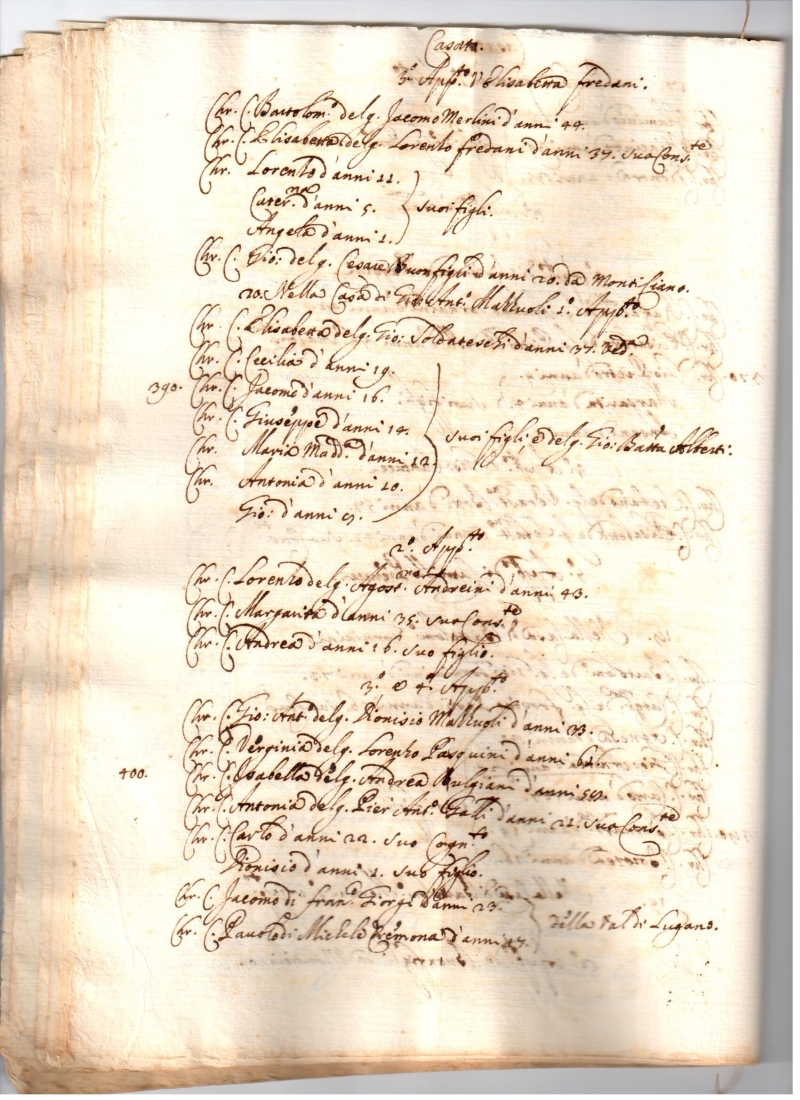 Casata.
3.º App.to V Elisabetta Fredani.
Chr. C. Bartolom.º del q. Jacomo Merlini d'anni 44.
Chr. C. Elisabetta del q. Lorenzo Fredani d'anni 37. sua Cons.te
Chr. Lorenzo d'anni 11.
Cater.na d'anni 5. suoi figli.
Angela d'anni 1.
Chr. C. Gio: del q. Cesare Buonfigli d'anni 20. da Monticiano.
20. Nella Casa di Gio: Ant.º Mazzuoli 1.º App.to
Chr. C. Elisabetta del q. Gio: Soldateschi d'anni 37. Ved.a
Chr. C. Cecilia d'anni 19.
390. Chr. C. Jacomo d'anni 16.
Chr. C. Giuseppe d'anni 14. suoi figli, e del q. Gio: Batta Alberti.
Chr. Maria Madd.a d'anni 12.
Chr. Antonia d'anni 10.
Gio: d'anni 9.
2.º App.to
Chr. C. Lorenzo del q. Agost.no Andreini d'anni 43.
Chr. C. Margarita d'anni 35. sua Cons.te
Chr. C. Andrea d'anni 16. suo figlio.
3.º, e 4.º App.to
Chr. C. Gio: Ant.º del q. Dionisio Mazzuoli d'anni 33.
Chr. C. Verginia del q. Lorenzo Pasquini d'anni
400. Chr. C. Isabella del q. Andrea Bulgiani d'anni
Chr. C. Antonia del q. Pier Ant.º Galli d'anni 21. sua Cons.te
Chr. C. Carlo d'anni 22. suo Cogn.to
Dionisio d'anni 1. suo figlio.
Chr. C. Jacomo di Fran.co Giorgi d'anni 23.
Chr. C. Pauolo di Michele Cremona d'anni 17. della Val di Lugano.